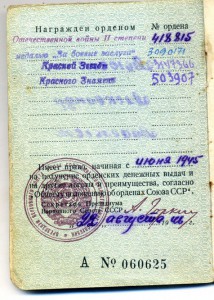 Награжден орденом № ордена
Отечественной войны II степени 418815
медалью "За боевые заслуги" 3090171
Красной Звезды
Красного Знамени 503907
Имеет право, начиная с июня 1945
на получение орденских денежных выдач и
на другие льготы и преимущества, согласно
"Общего положения об орденах Союза ССР".
Секретарь Президиума
Верховного Совета СССР
августа
А № 060625